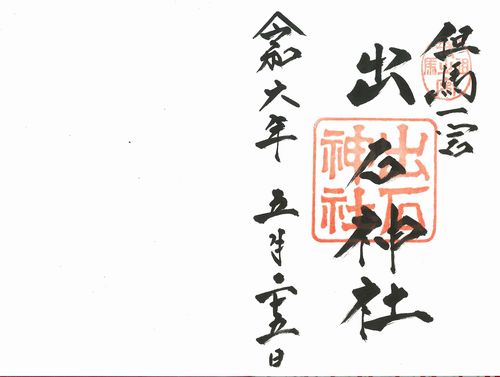 但馬一宮
出石神社
出石神社
令和六年 五月二十五日